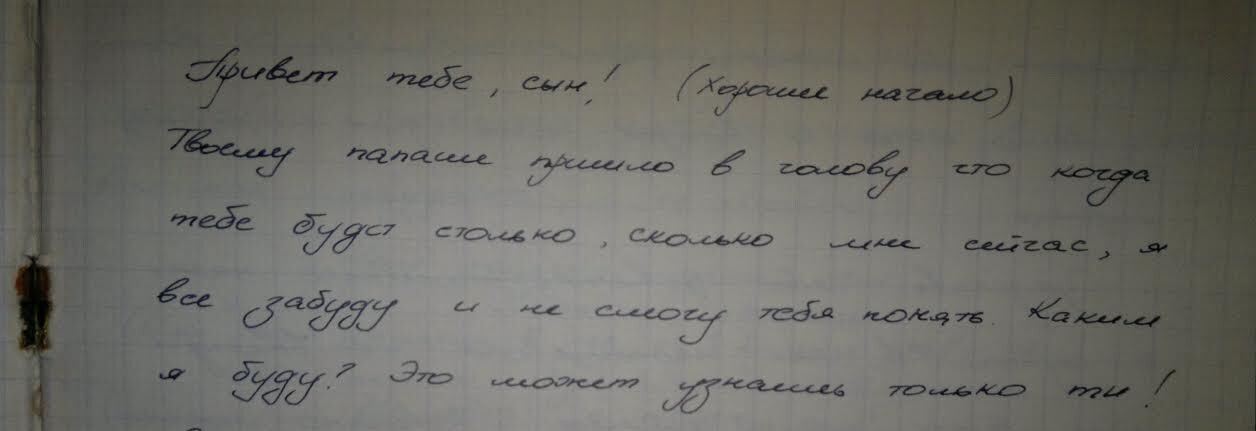 Привет тебе, сын! (Хорошее начало)
Твоему папаше пришло в голову что когда
тебе будет столько, сколько мне сейчас, я
все забуду и не смогу тебя понять. Каким
я буду? Это может узнаешь только ты!